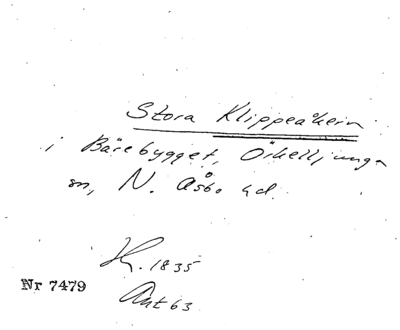 Stora Klippeåkern
i Bärebygget, Örkelljunga
sn, N. Åsbo hd.
H. 1835
Nr 7479
Ant 63